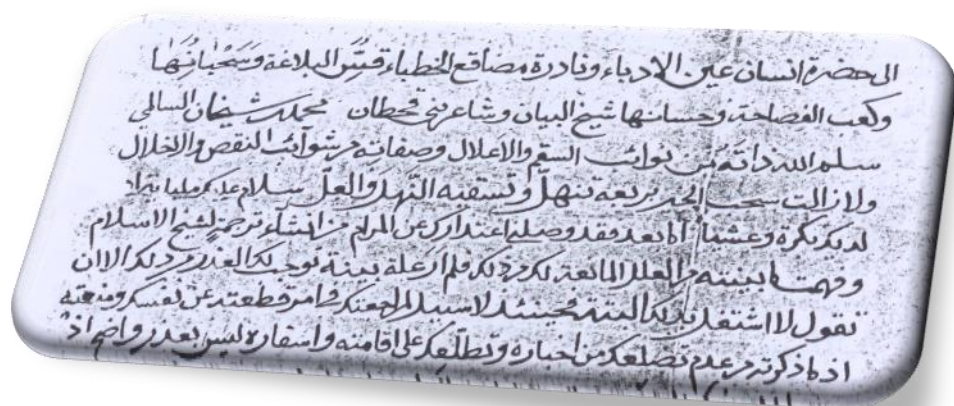 الى حضرة انسان عين الادباء ونادرة مصاقع الخطباء قسّ البلاغة وسحبانها
وكعب الفصاحة وحسانها شيخ البيان وشاعر بني قحطان محمد بن شيخان السالمي
سلم الله ذاته من نوائب السقم والاعلال وصفاته من شوائب النقص والاخلال
ولا زالت سحب الحمد بربعه تنهلّ وتسقيه النهل والعلّ سلام عليكم مليا يتردد
لديك بكرة وعشيا اما بعد فقد وصلني اعتذارك عن المرام من انشاء ترجمة لشيخ الاسلام
وفهمت ما بينته من العلل المانعة لك من ذلك فلم ار علة بينة توجب لك العذر من ذلك الا ان
تقول لا اشتغل بذلك البتة فحينئذ لا سبيل لمراجعتك في امر قطعته عن نفسك ومنعته
اذ ما ذكرته من عدم تضلعك من اخباره وتطلعك على اقامته واسفاره ليس بعذر واضح اذ